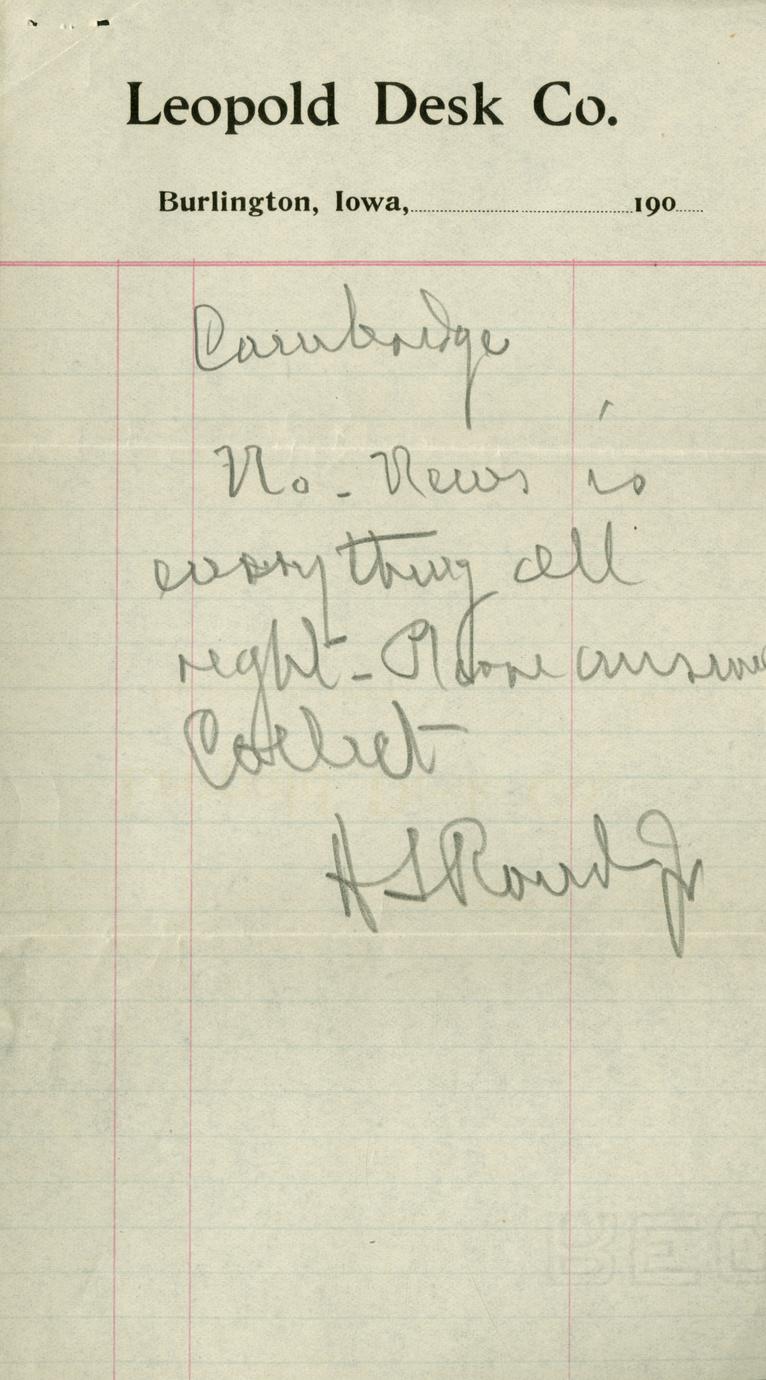 Leopold Desk Co.
Burlington, Iowa, 190
Cambridge
No - News is
everything all
right - Please answer
Collect
H L Rand Jr